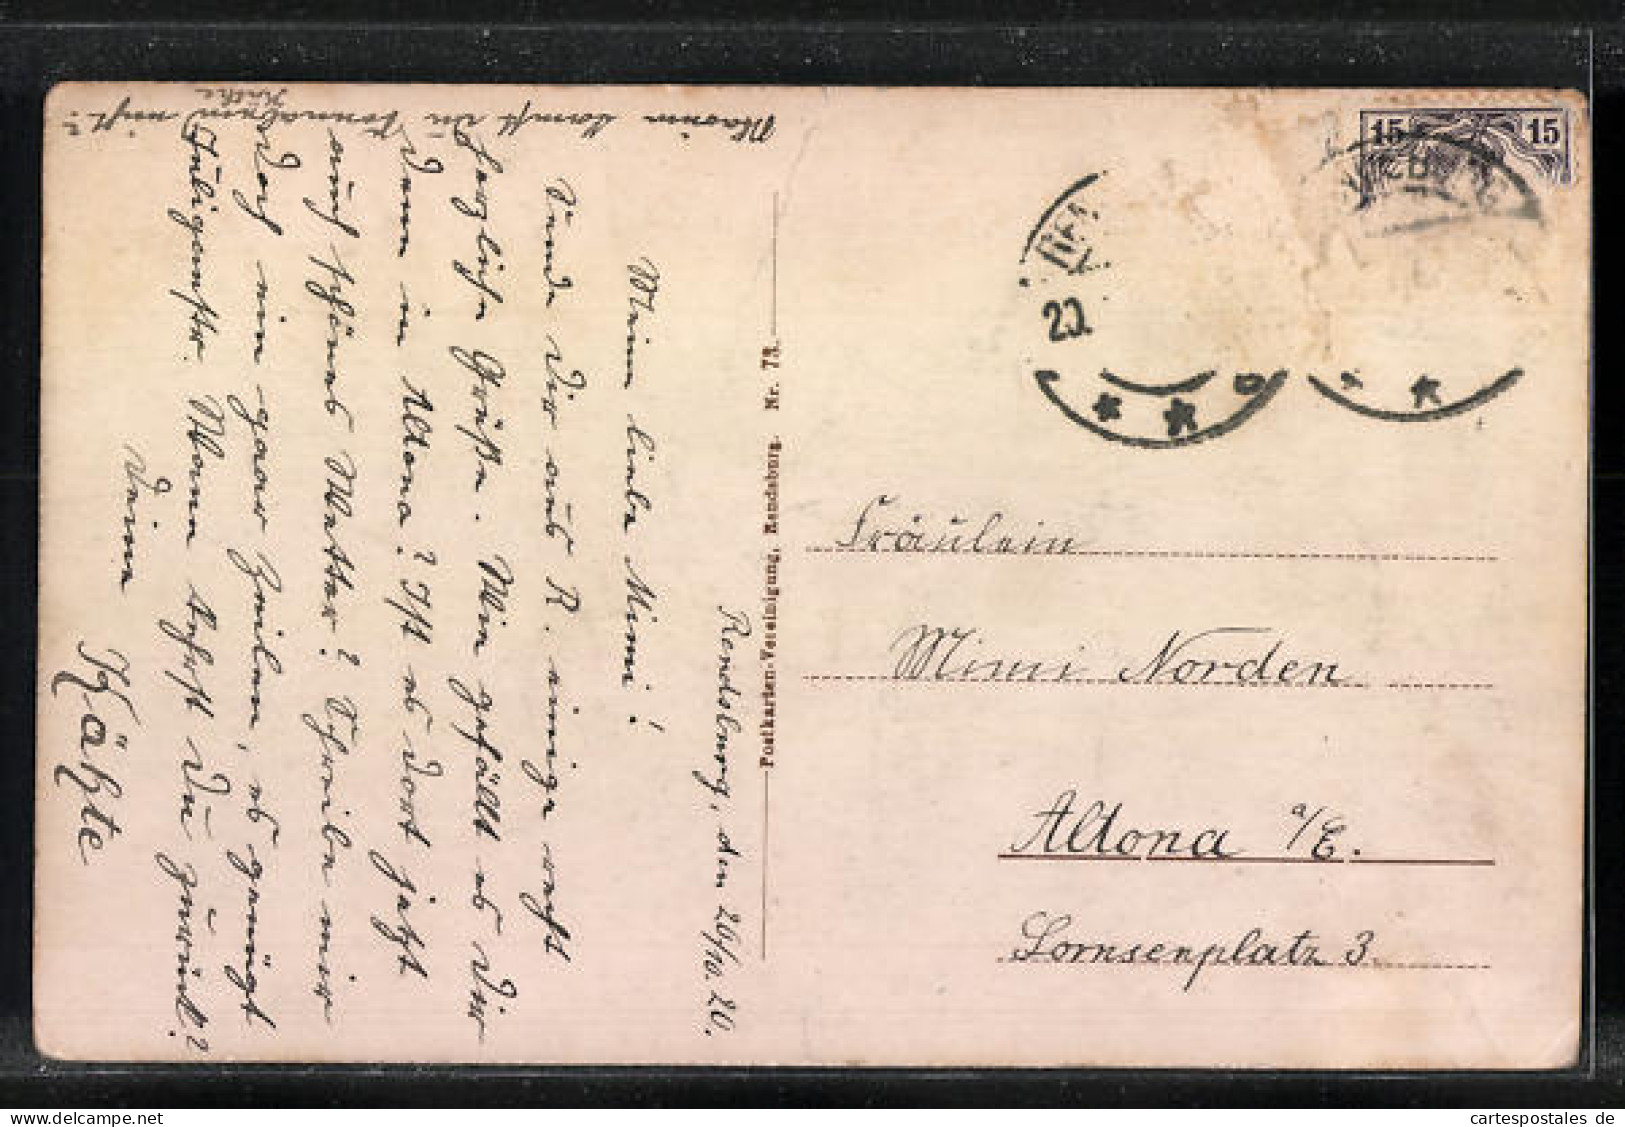 Rendsburg, den 26/10. 20.
Meine liebe Mimi!
Sende Dir aus R. einige recht
herzliche Grüße. Wie gefällt es Dir
denn in Altona? Ist es dort jetzt
auch schönes Wetter? Schreibe mir
doch ein paar Zeilen, es genügt
Wann kehrst Du zurück?
Deine
Käthe
Warum kamst Du Sonnabend nicht?
Käthe
Postkarten-Vereinigung, Rendsburg. Nr. 73.
15 15
20.
Fräulein
Mimi Norden
Altona a/E.
Lornsenplatz 3.
cartespostales de